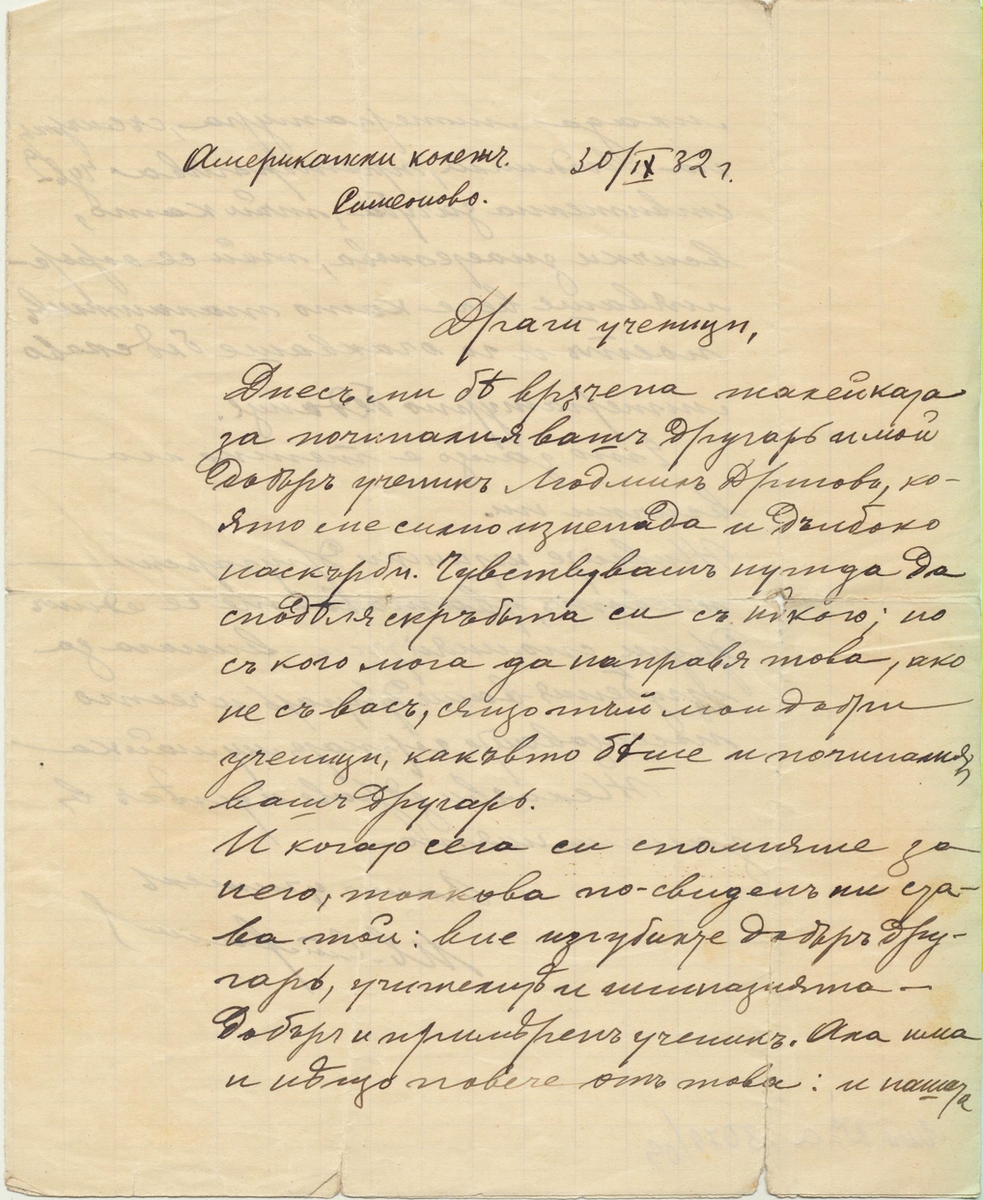 Американски колежъ. 30/IX 32 г.
Симеоново.
Драги ученици,
Днесъ ми бѣ врѫчена жалейката
за починалия вашъ другарь и мой
добъръ ученикъ Людмилъ Дриновъ, ко-
ято ме силно изненада и дълбоко
наскърби. Чувствувамъ нужда да
сподѣля скръбьта си съ нѣкого; но
съ кого мога да направя това, ако
не съ васъ, също тъй мои добри
ученици, какъвто бѣше и починалия
вашъ другарь.
И когато сега си спомняме за
него, толкова по-свиденъ ни ста-
ва той: вие изгубихте добъръ дру-
гарь, учителитѣ и гимназията —
добъръ и примѣренъ ученикъ. Ала има
и нѣщо повече отъ това: и нашата